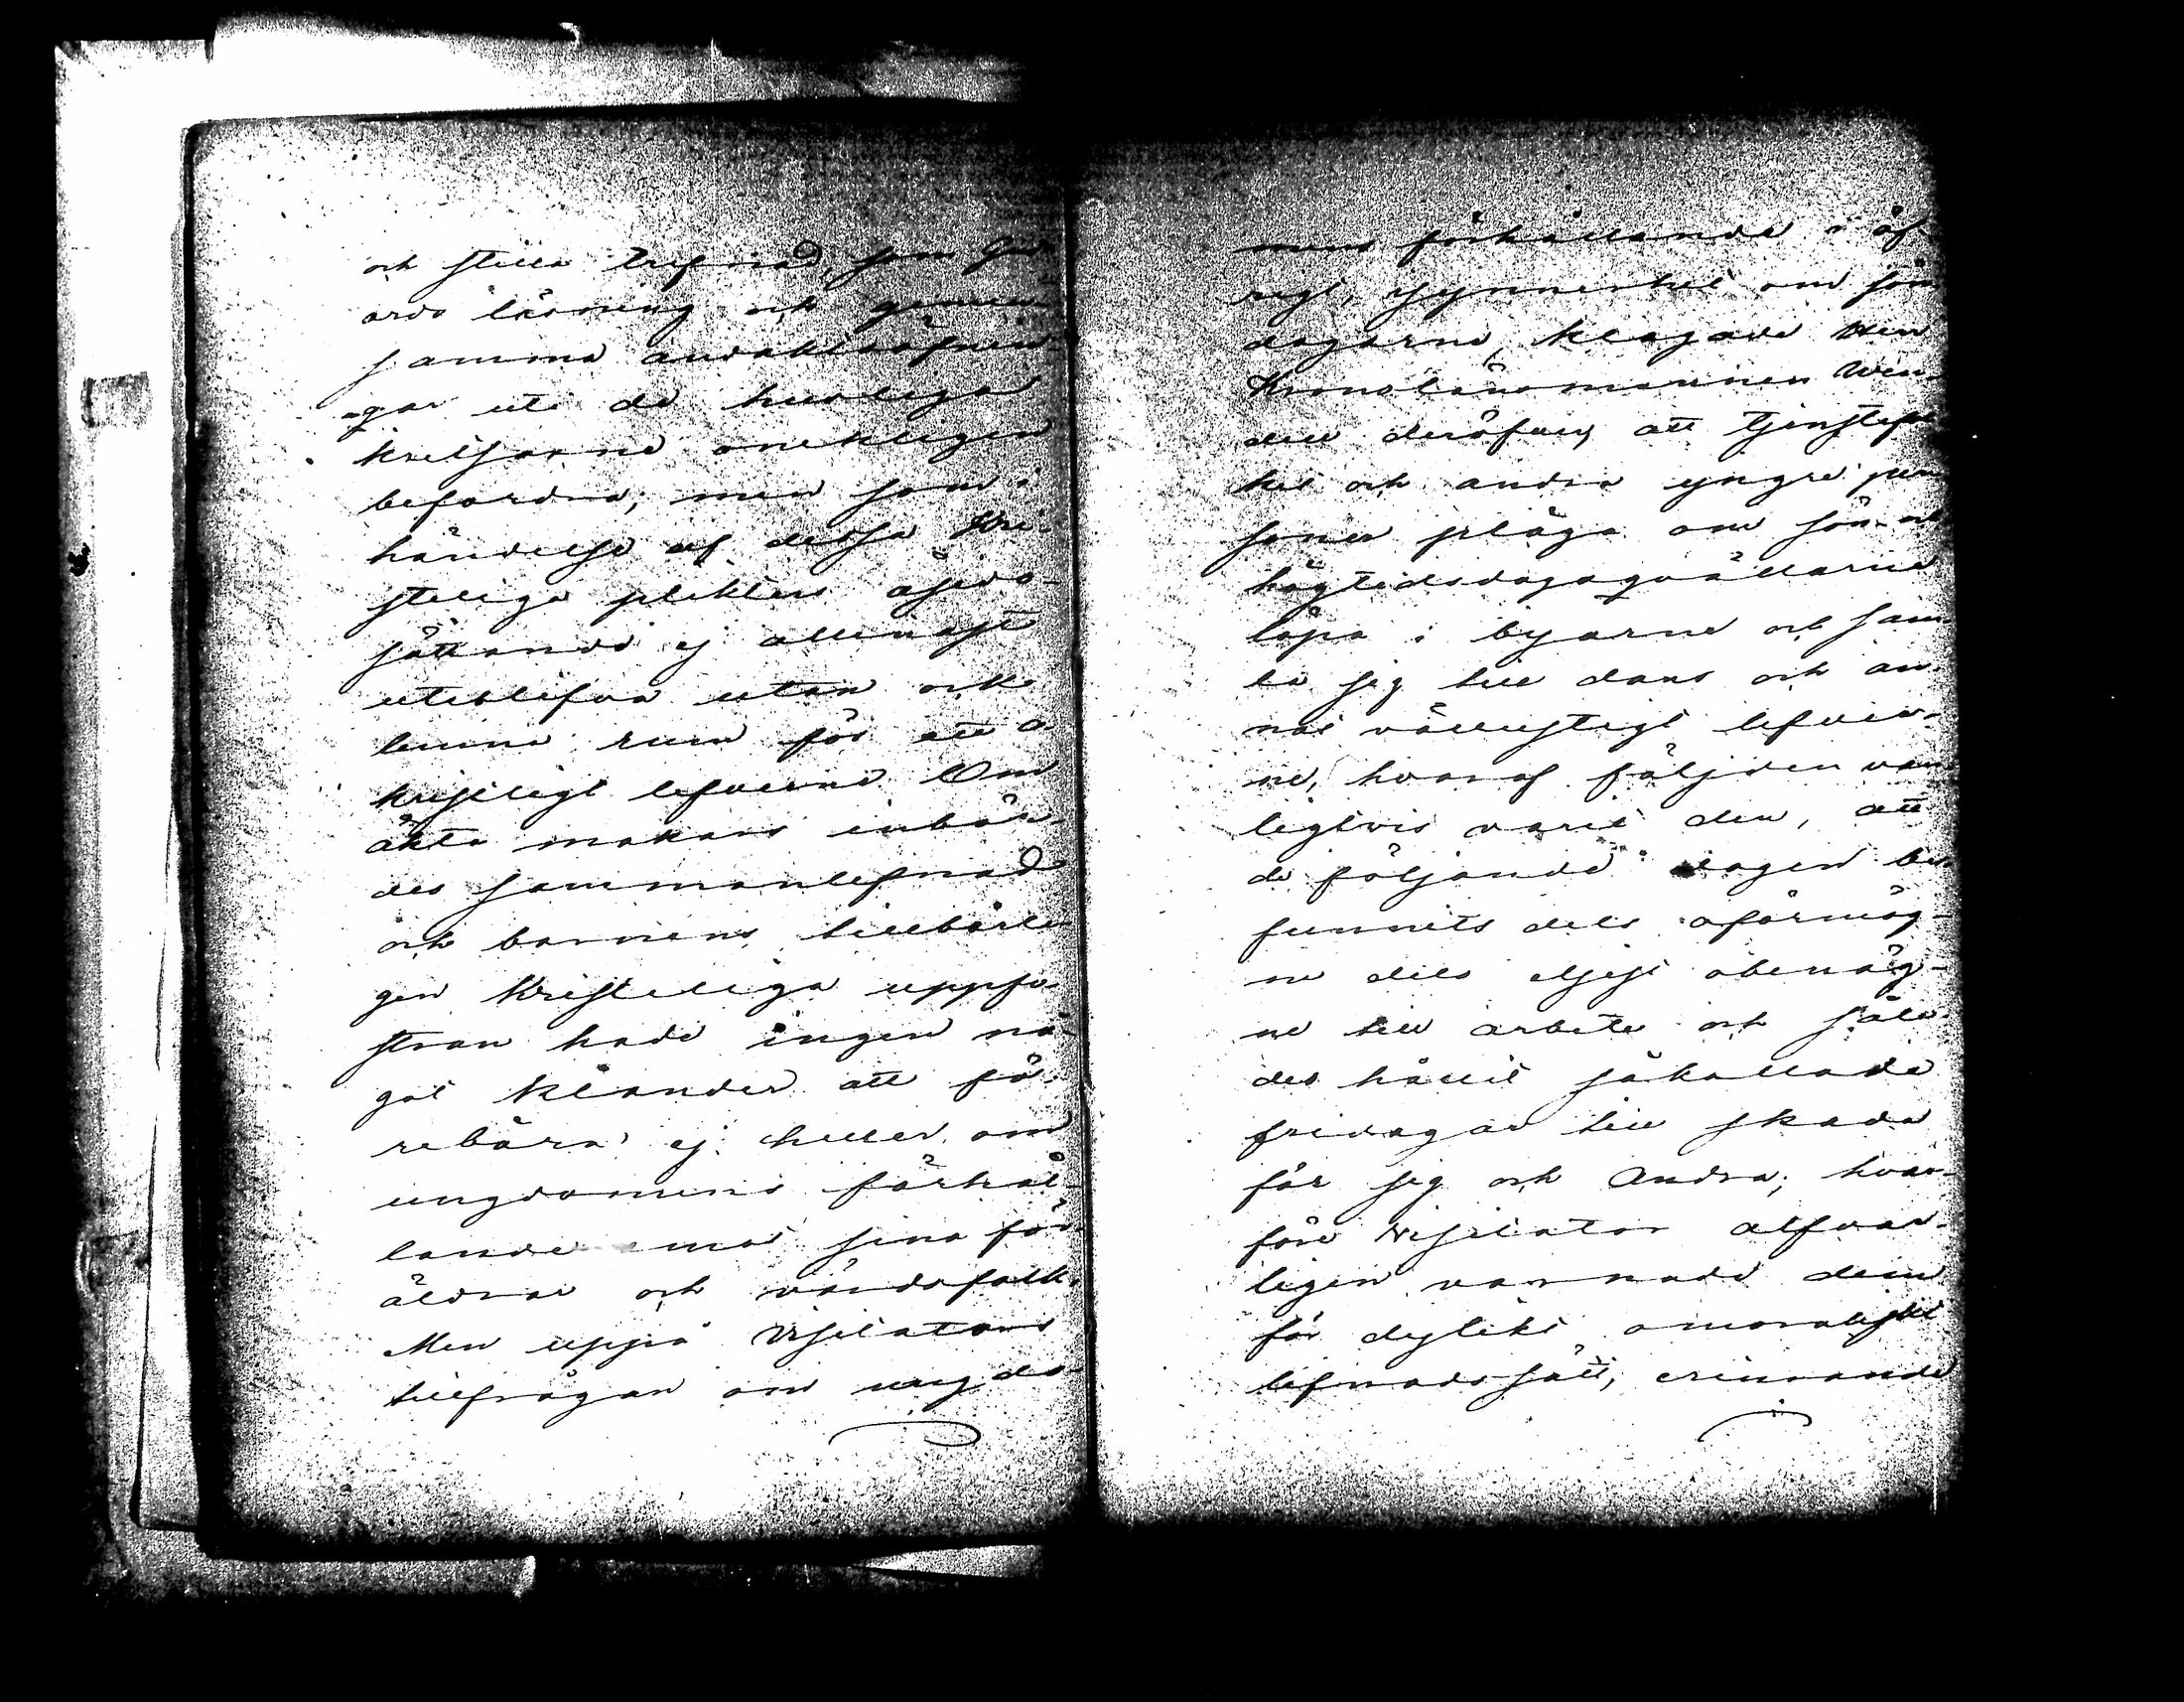 och stilla trefnad, som Guds
ords läsning och gemen-
samma andaktsöfnin-
gar uti de husliga
kretsarne onekligen
befordra; men som i
händelse af dessa Kri-
steliga plikters åsido-
sättande ej allenast
uteblifva utan ock
lemna rum för ett o-
kristligt lefverne. Om
äkta makars inbör-
des sammanlefnad
och barnens tillbörli-
gen Kristeliga uppfo-
stran hade ingen nå-
got klander att fö-
rebära, ej heller om
ungdomens förhål-
lande mot sina för-
äldrar och värdsfolk.
Men uppå Visitators
tillfrågan om ungdo-
mens förhållande i öf-
rigt, isynnerhet om sön-
dagarne, klagade
Kronolänsmannen
deröfver, att tjenstefol-
ket och andra yngre per-
soner pläga om sön- och
högtidsdagsqvällarne
löpa i byarne och sam-
la sig till dans och an-
nat vällustigt lefver-
ne, hvaraf följden van-
ligtvis varit den, att
de följande dagen be-
funnits dels oförmög-
ne dels eljest obenäg-
ne till arbete och såle-
des hållit såkallade
fridagar till skada
för sig och Andra; hvar-
före Visitator alfvar-
ligen varnade dem
för dylikt omoraliskt
lefnadssätt, erinrande